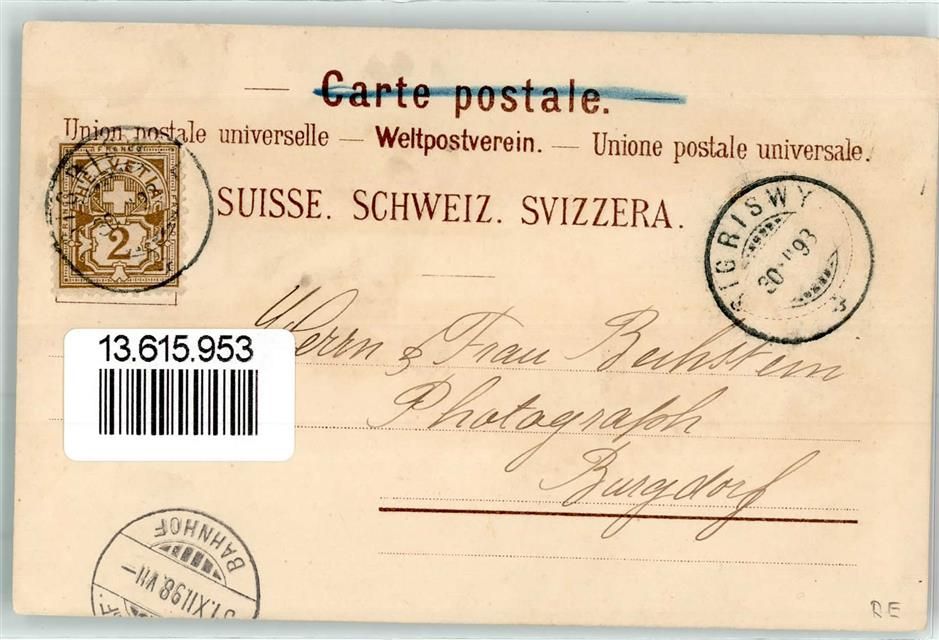 Carte postale.
Union postale universelle — Weltpostverein. — Unione postale universale.
SUISSE. SCHWEIZ. SVIZZERA.
FRANCO
HELVETIA
2
SIGRISWYL
30 98
13.615.953
Herrn & Frau Bechstein
Photograph
Burgdorf
BAHNHOF
31.XII.98.VII—
RE